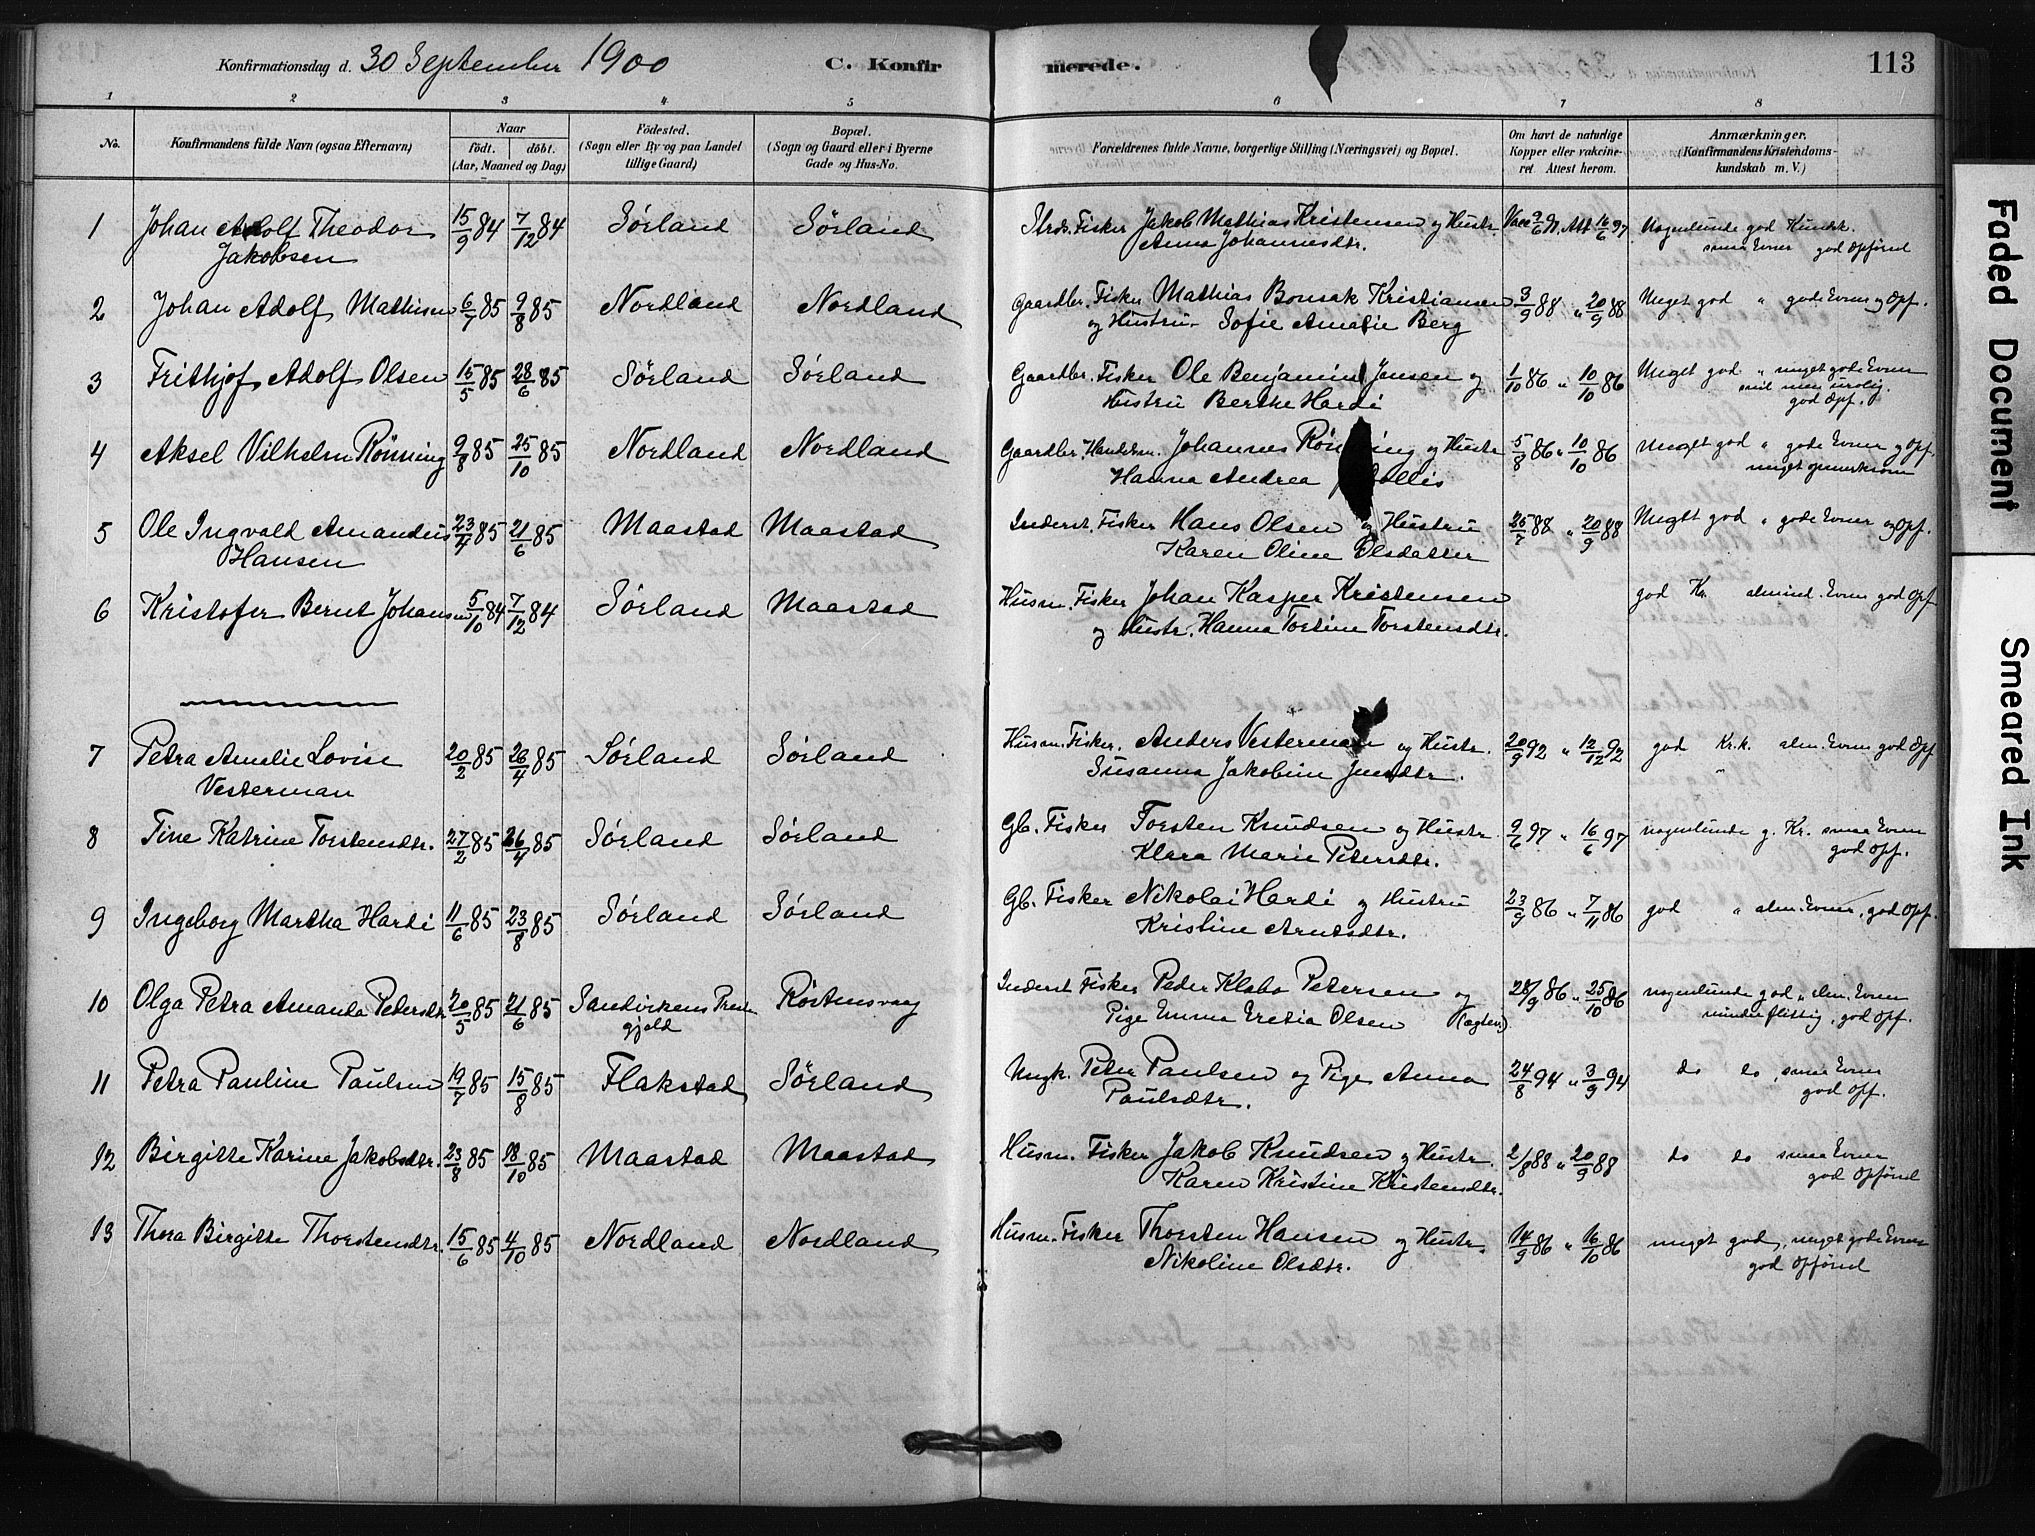 Konfirmationsdag d. 30 September 1900 C. Konfirmerede. 113
1 2 3 4 5 6 7 8
No. Konfirmandens fulde Navn (ogsaa Efternavn) Naar födt. döbt. (Aar, Maaned og Dag) Födested. (Sogn eller By og paa Landet tillige Gaard) Bopæl. (Sogn og Gaard eller i Byerne Gade og Hus-No. Forældrenes fulde Navne, borgerlige Stilling (Næringsvei) og Bopæl. Om havt de naturlige Kopper eller vakcineret. Attest herom. Anmærkninger. (Konfirmandens Kristendomskundskab m. V.)
1 Johan Adolf Theodor 15/9 84 7/12 84 Sörland Sörland Strds. Fisker Jakob Mathias Kristensen og Hustr. Vacc 9/6 97. Att 16/6 97 Nogenlunde god Kundsk.
Jakobsen Anna Johannesdtr. smaa Evner god Opförsel
2 Johan Adolf Mathisen 6/7 85 9/8 85 Nordland Nordland Gaardbr. Fisker Mathias Bonsak Kristiansen 3/9 88 " 20/9 88 Meget god " gode Evner og Opf.
og Hustru Sofie Amalie Berg
3 Frithjof Adolf Olsen 15/5 85 28/6 85 Sörland Sörland Gaardbr. Fisker Ole Benjamin Jensen og 1/10 86 " 10/10 86 Meget god " meget gode Evner
Hustru Berthe Hardi snil men urolig.
god Opf.
4 Aksel Vilhelm Rönning 9/8 85 25/10 85 Nordland Nordland Gaardbr. Handelsm. Johannes Rönning og Hustr 5/8 86 " 10/10 86 Meget god " gode Evner og Opf.
Hanna Andrea meget opmerksom
5 Ole Ingvald Amandus 23/4 85 21/6 85 Maastad Maastad Inderst. Fisker Hans Olsen og Hustru 25/7 88 " 20/9 88 Meget god " gode Evner og Opf.
Hansen Karen Oline Olsdatter
6 Kristofer Bernt Johansen 5/10 84 7/12 84 Sörland Maastad Husm. Fisker Johan Kasper Kristensen god Kr. almind. Evner god Opf
og Hustr. Hanna Tostine Torstensdtr.
7 Petra Amalie Lovise 20/2 85 26/4 85 Sörland Sörland Husm. Fisker. Anders Vesterman og Hustr. 20/9 92 " 12/12 92 god Kr.k. alm. Evner god Opf
Vesterman Susanna Jakobine Jensdtr.
8 Tine Katrine Torstensdtr. 27/2 85 26/4 85 Sörland Sörland Gb. Fisker Torsten Knudsen og Hustr. 9/6 97 " 16/6 97 nogenlunde g. Kr. smaa Evner
Klara Marie Petersdtr. god Opf.
9 Ingeborg Martha Hardi 11/6 85 23/8 85 Sörland Sörland Gb. Fisker Nikolai Hardi og Hustru 23/9 86 " 7/11 86 god " alm. Evner, god Opf.
Kristine Arntsdtr.
10 Olga Petra Amanda Petersdtr 20/5 85 21/6 85 Sandvikens Preste- Röstensvaag Inderst Fisker Peder Klabo Petersen og 28/9 86 " 25/10 86 nogenlunde god " alm. Evner
gjeld Pige Emma Eretia Olsen (ægtev.) mindre flittig, god Opf.
11 Petra Pauline Paulsen 19/7 85 15/8 85 Flakstad Sörland Ungk. Peter Paulsen og Pige Anna 24/8 94 " 3/9 94 do do, smaa Evner
Paulsdtr. god Opf.
12 Birgitte Karine Jakobsdtr. 23/8 85 18/10 85 Maastad Maastad Husm. Fisker Jakob Knudsen og Hustr. 2/8 88 " 20/9 88 do do smaa Evner
Karen Kristine Kristensdtr. god Opförsel
13 Thora Birgitte Thorstensdtr. 15/6 85 4/10 85 Nordland Nordland Husm. Fisker Thorsten Hansen og Hustr. 14/9 86 " 16/10 86 meget god, meget gode Evner
Nikoline Olsdtr. god Opförsel
Faded Document
Smeared Ink